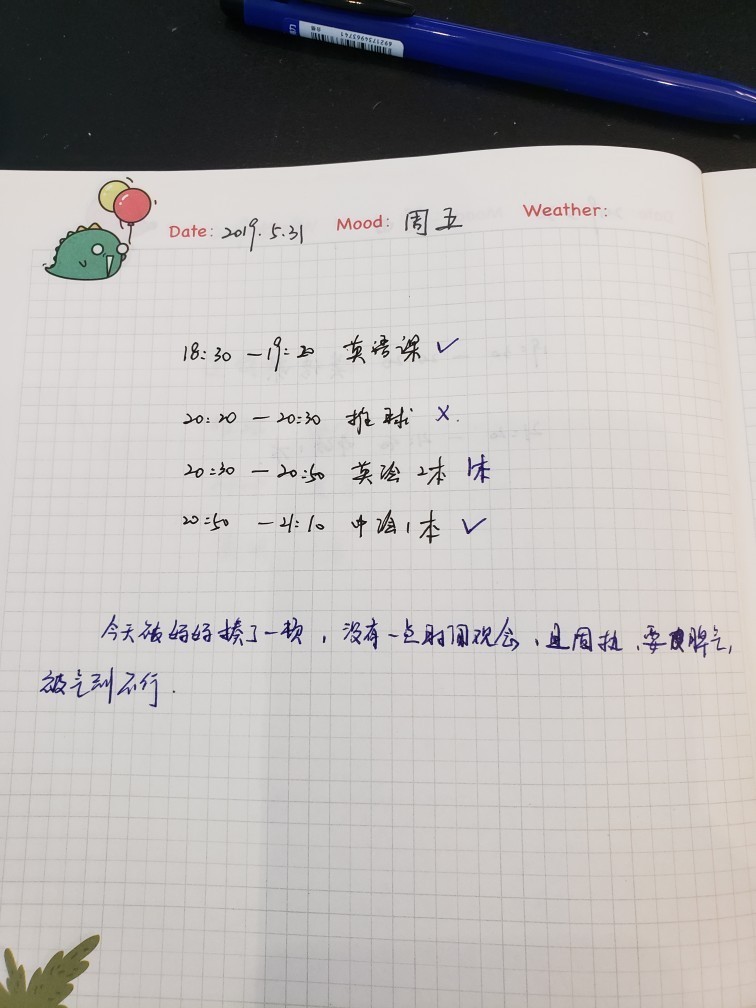 6921734963741
Date: 2019.5.31 Mood: 周五 Weather:
18:30 -19:20 英语课 ✓
20:20 -20:30 推球 ×.
20:30 -20:50 英绘2本 1本
20:50 -21:10 中绘1本 ✓
今天被好好揍了一顿,没有一点时间观念、且固执、耍脾气,
被气到不行.